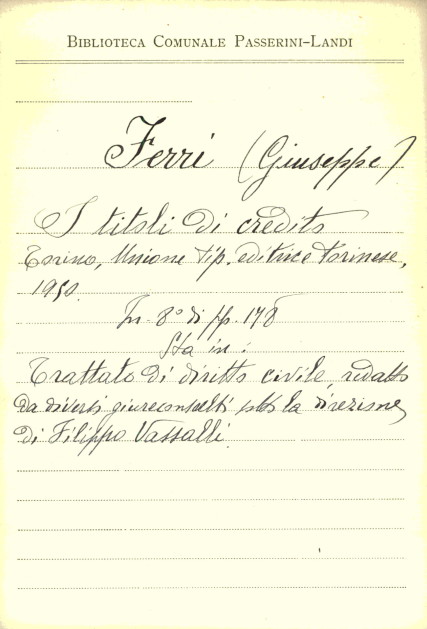 BIBLIOTECA COMUNALE PASSERINI-LANDI
Ferri (Giuseppe)
I titoli di credito
Torino, Unione tip. editrice torinese,
1950.
In 8° di pp. 178
Sta in:
Trattato di diritto civile, redatto
da diversi giureconsulti sotto la direzione
di Filippo Vassalli.